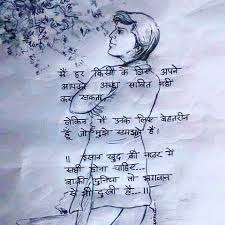 मैं हर किसी के लिए अपने
आपको अच्छा साबित नहीं
कर सकता,
लेकिन मैं उनके लिए बेहतरीन
हूँ जो मुझे समझते हैं।
इंसान खुद की नज़र में
सही होना चाहिए..
बाकी दुनिया तो भगवान
से भी दुखी है...॥